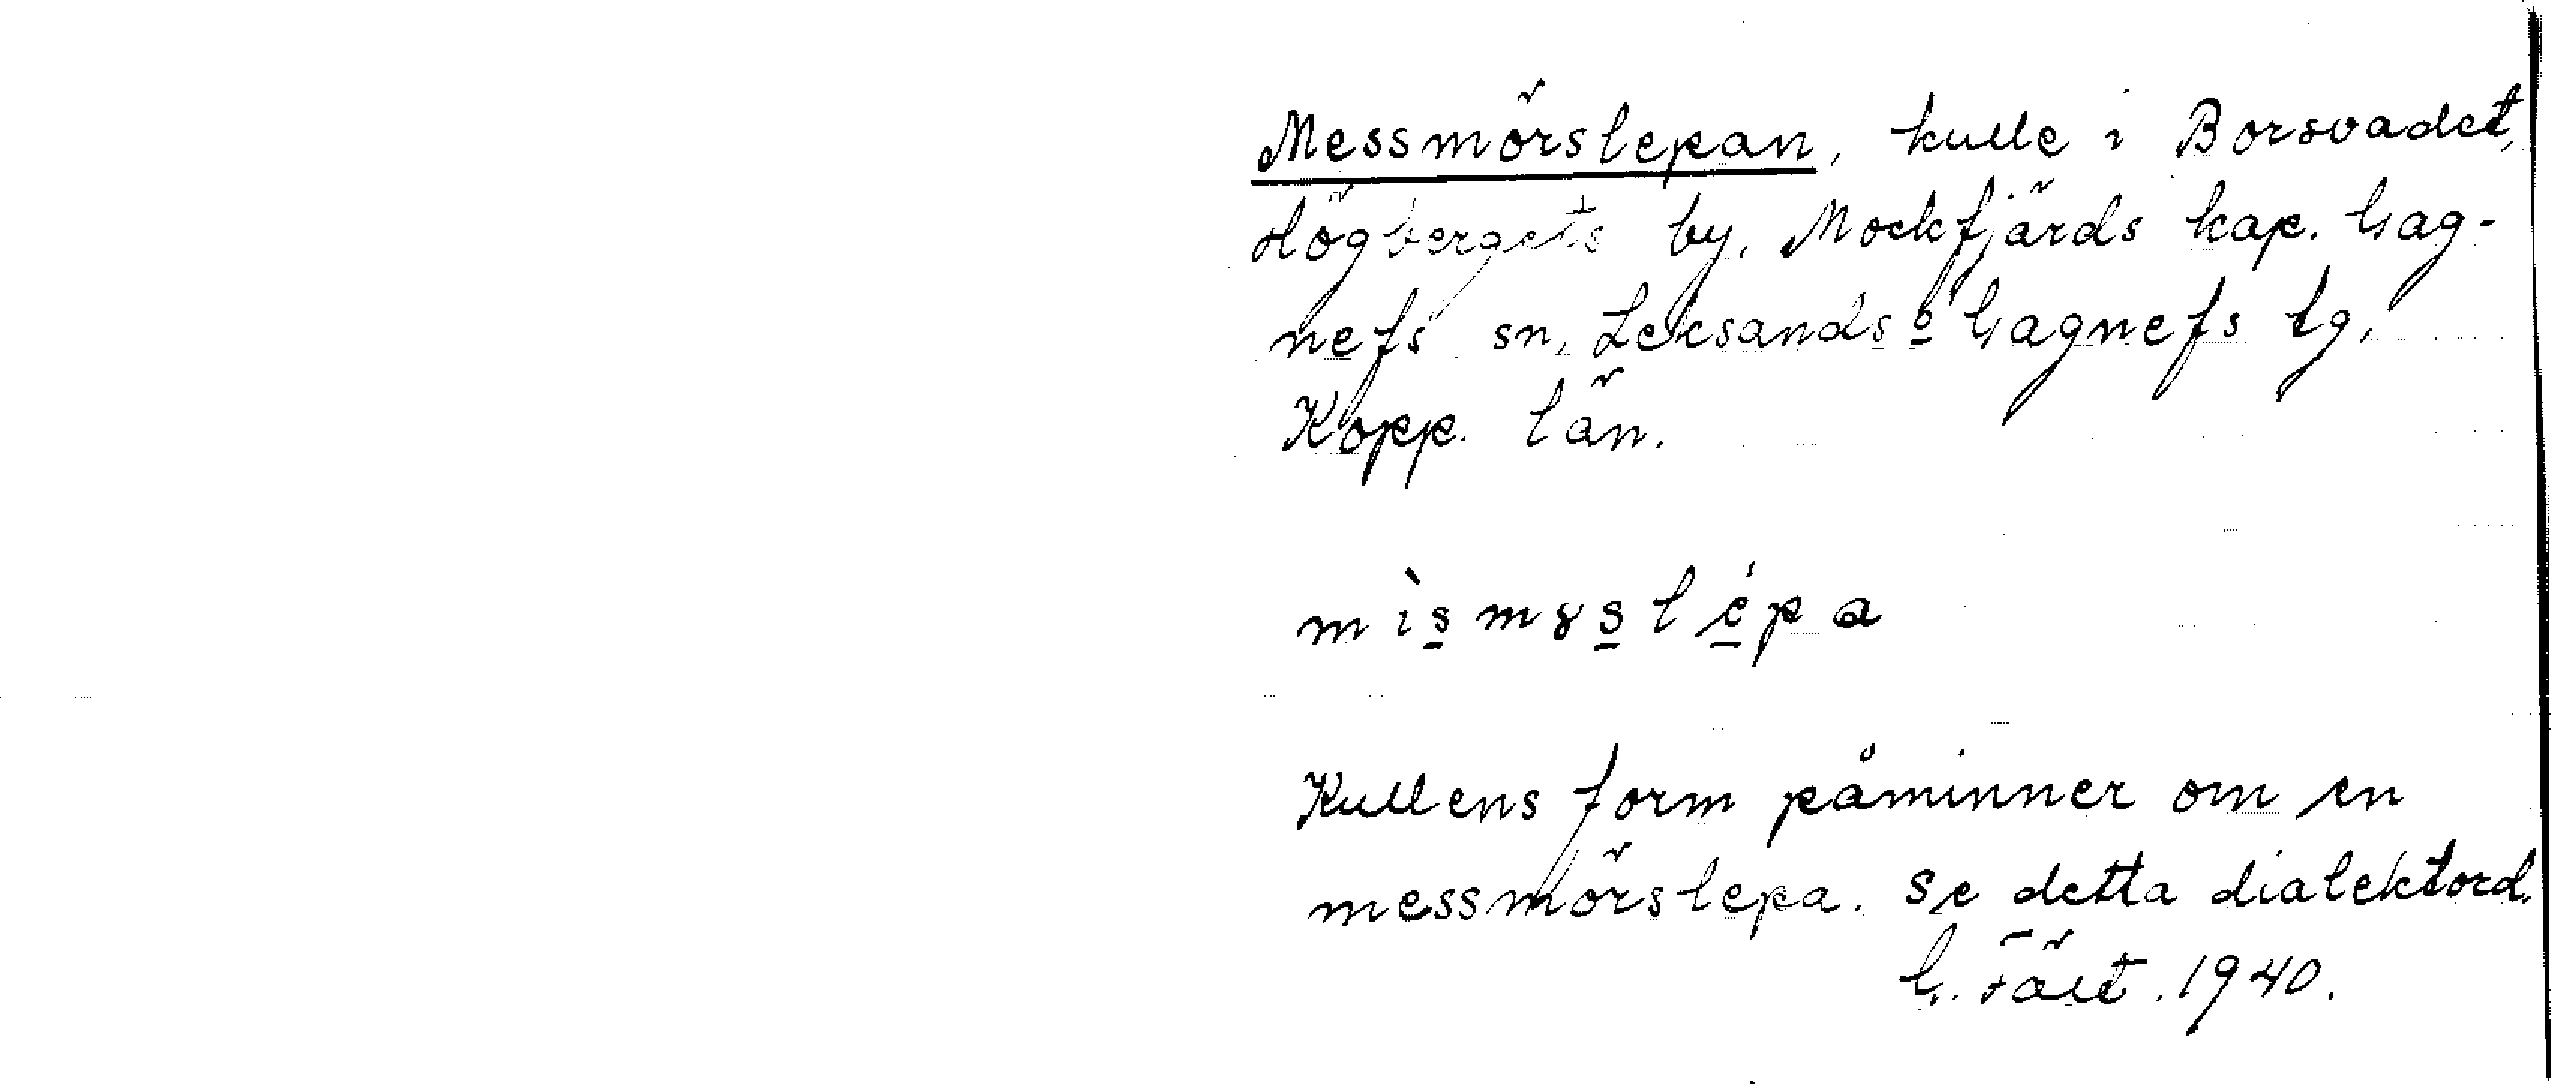 Messmörslepan, kulle i Borsvadet,
Högbergets by, Mockfjärds kap. Gag-
nefs sn, Leksands o Gagnefs tg,
Kopp. län.
mismyslépa
Kullens form påminner om en
messmörslepa. Se detta dialektord.
G. Tält. 1940.